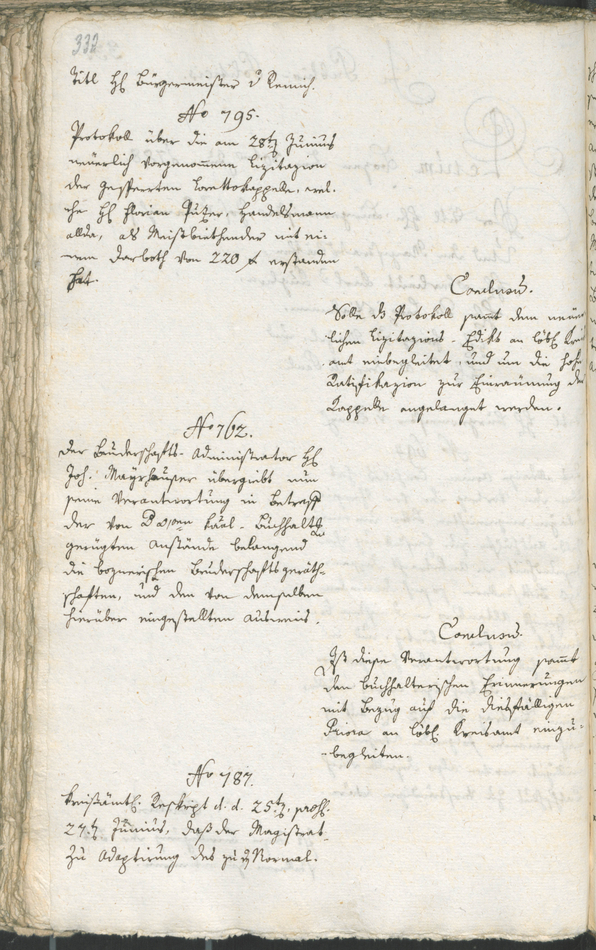 332
Titl H. Bürgermeister v Remich.
No 795.
Protokoll über die am 28t. Junius
neuerlich vorgenommene Lizitazion
der gesperrten Lorettokappelle, wel-
che H. Florian Putzer, Handelsmann
allda, als Meistbiethender mit ei-
nem Darboth von 220 f erstanden
hat.
Conclusum.
Solle ds Protokoll sammt dem neuer-
lichen Lizitazions-Edikt an löbl. Kreis
amt einbegleitet, und um die hohe
Ratifikazion zur Einraumung der
Kappelle angelanget werden.
No 762.
Der Bruderschafts-Administrator H.
Joh. Mayrhauser übergibt nun
seine Verantwortung in Betreff
der von Buchhaltg
gerügten Anstände belangend
die boznerischen Bruderschaftsgeräth-
schaften, und den von demselben
hierüber eingestellten Ausweis.
Conclusum.
Ist diese Verantwortung sammt
den buchhalterischen Erinnerungen
mit Bezug auf die diesfälligen
Priora an löbl. Kreisamt einzu-
begleiten.
No 787.
Kreisämtl. Reskript d. d. 25t. präs.
27t. Junius, daß der Magistrat
zu Adaptirung des zu Normal-